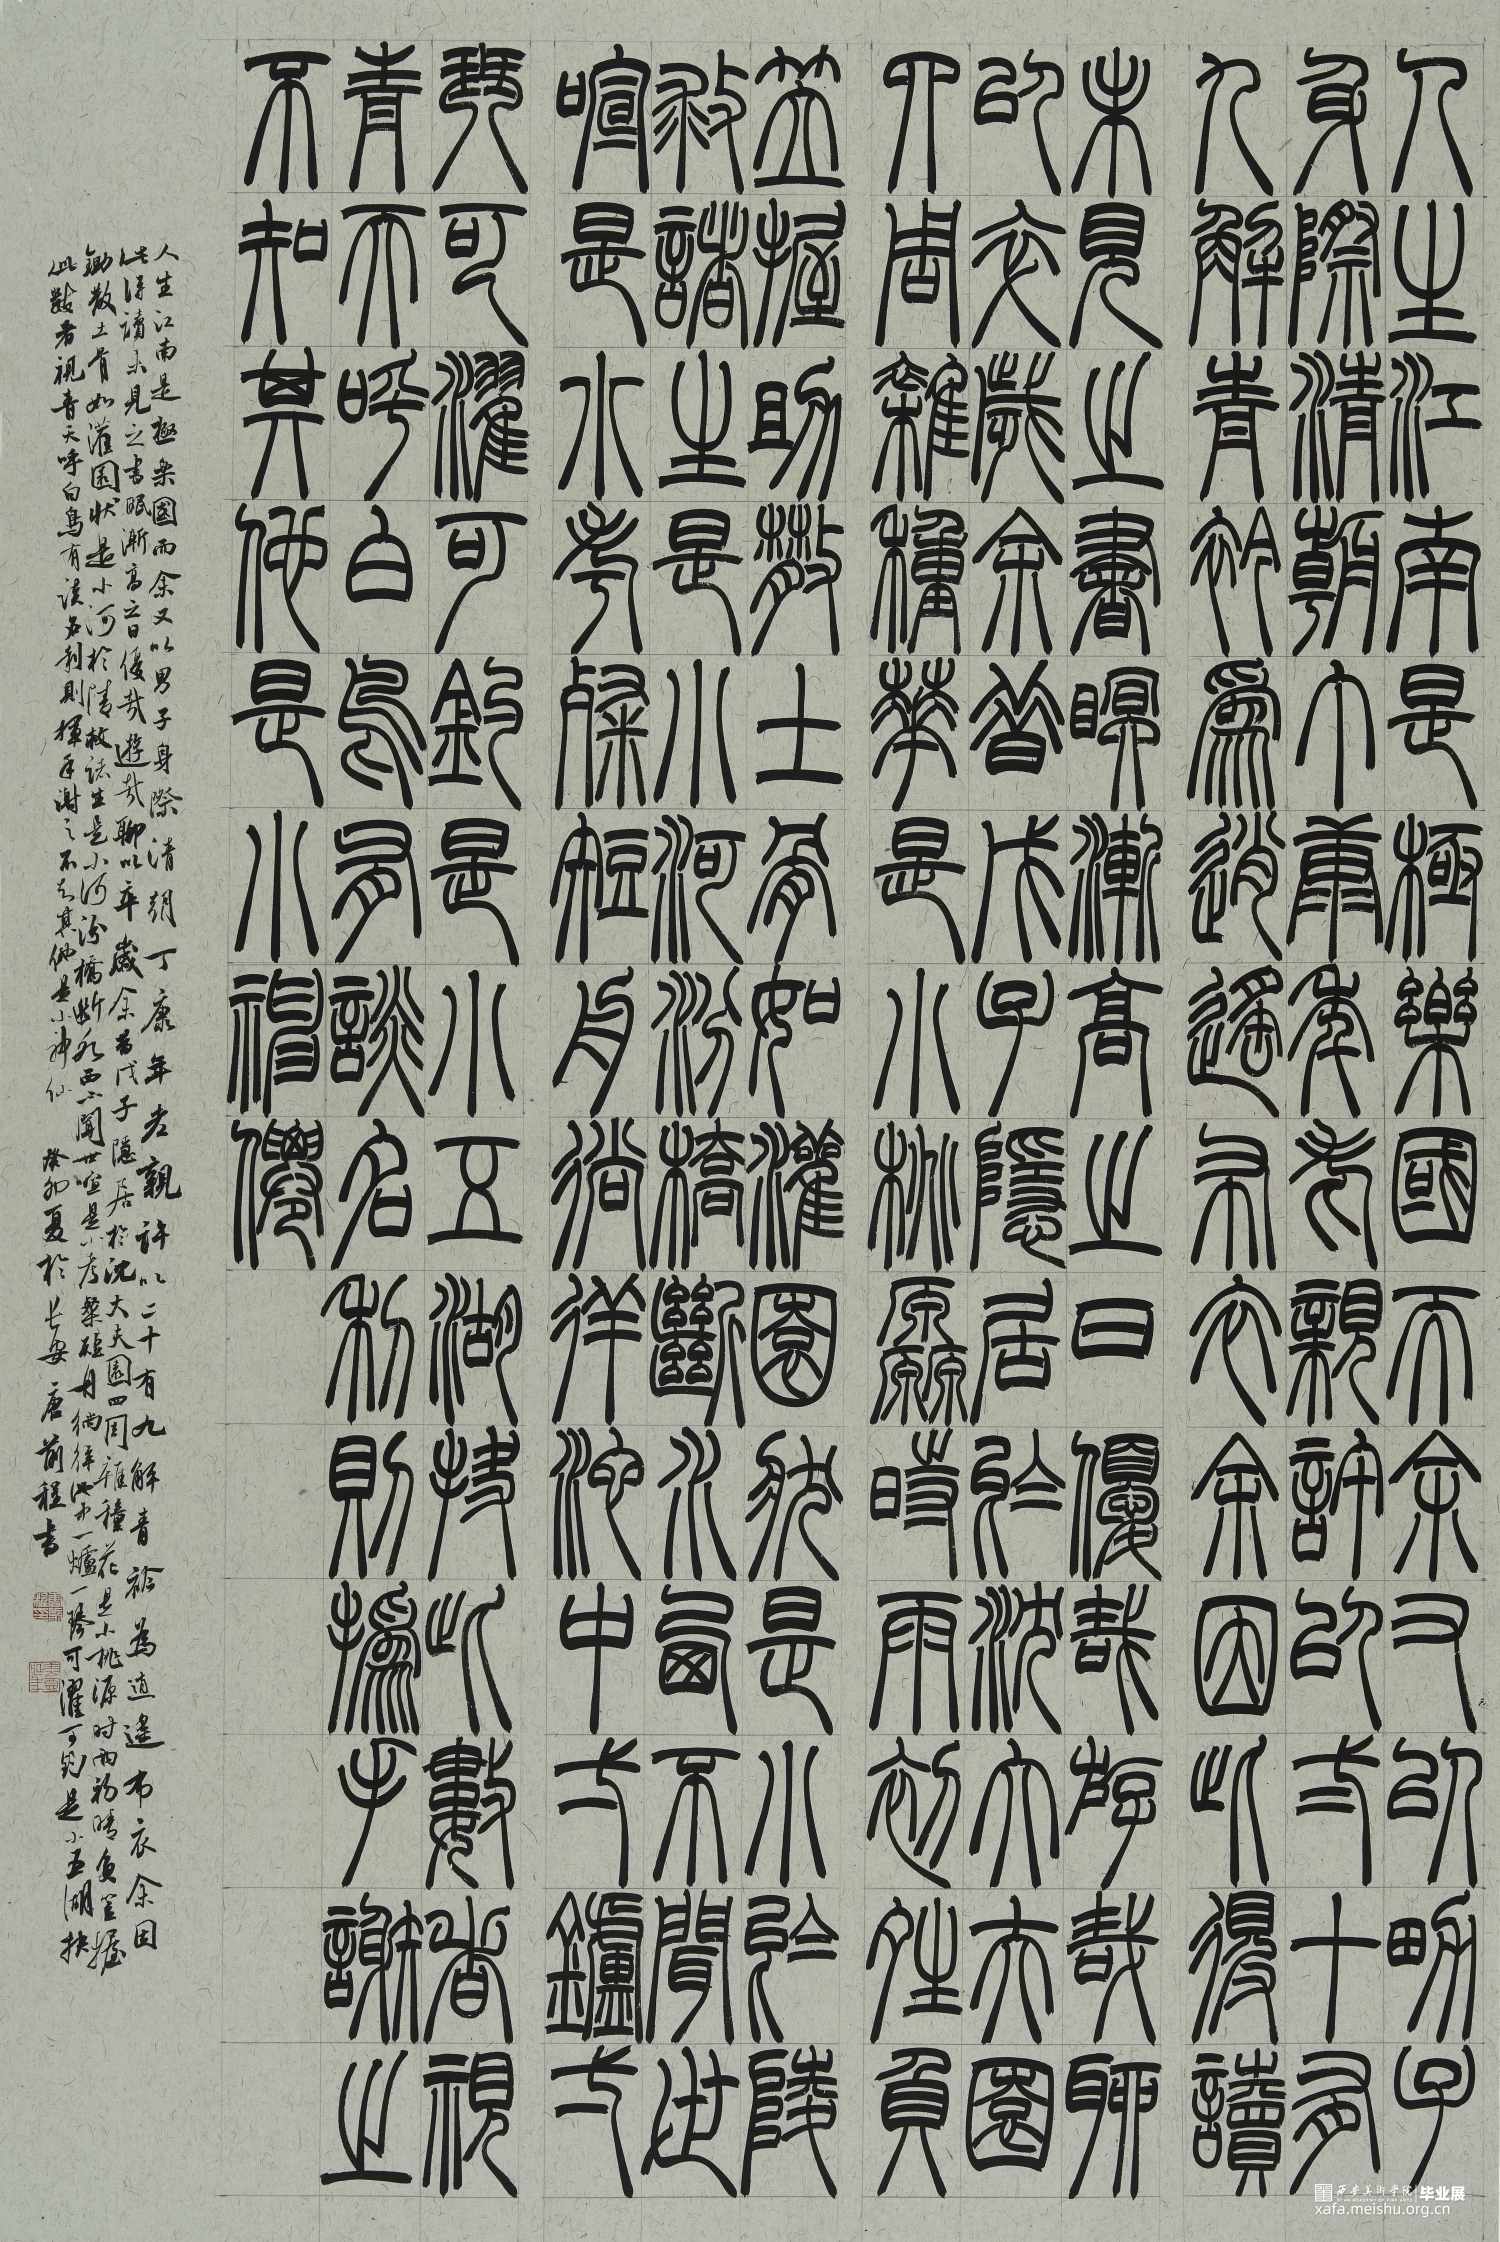 人生江南是極樂國而余又以男子
身際清朝丁康年老親許以弍十有
九解青衿為逍遙布衣余因此得讀
未見之書眠漸高之日優哉游哉聊
以卒歲余昔戊子隱居於沈大夫園
四周雜種華是小桃源時雨初晴負
笠握鋤散土膏如灌園狀是小於陵
敕諸生是小河汾橋斷水西不聞世
喧是小考槃短舟徜徉池中弌鑪弌
琴可濯可釣是小五湖抉此數者視
青天呼白鳥有談名利則揮手謝之
不知其他是小神僊
人生江南是極樂國而余又以男子身際清朝丁康年老親許以二十有九解青衿為逍遙布衣余因
此得讀未見之書眠漸高之日優哉遊哉聊以卒歲余昔戊子隱居於沈大夫園四周雜種花是小桃源时雨初晴負笠握
鋤散土膏如灌園狀是小河於陵敕諸生是小河汾橋斷水西不聞世喧是小考槃短舟徜徉池中一爐一琴可濯可釣是小五湖抉
此數者視青天呼白鳥有談名利則揮手謝之不知其他是小神仙 癸卯夏於長安唐前程書
西安美術學院 毕业展
xafa.meishu.org.cn